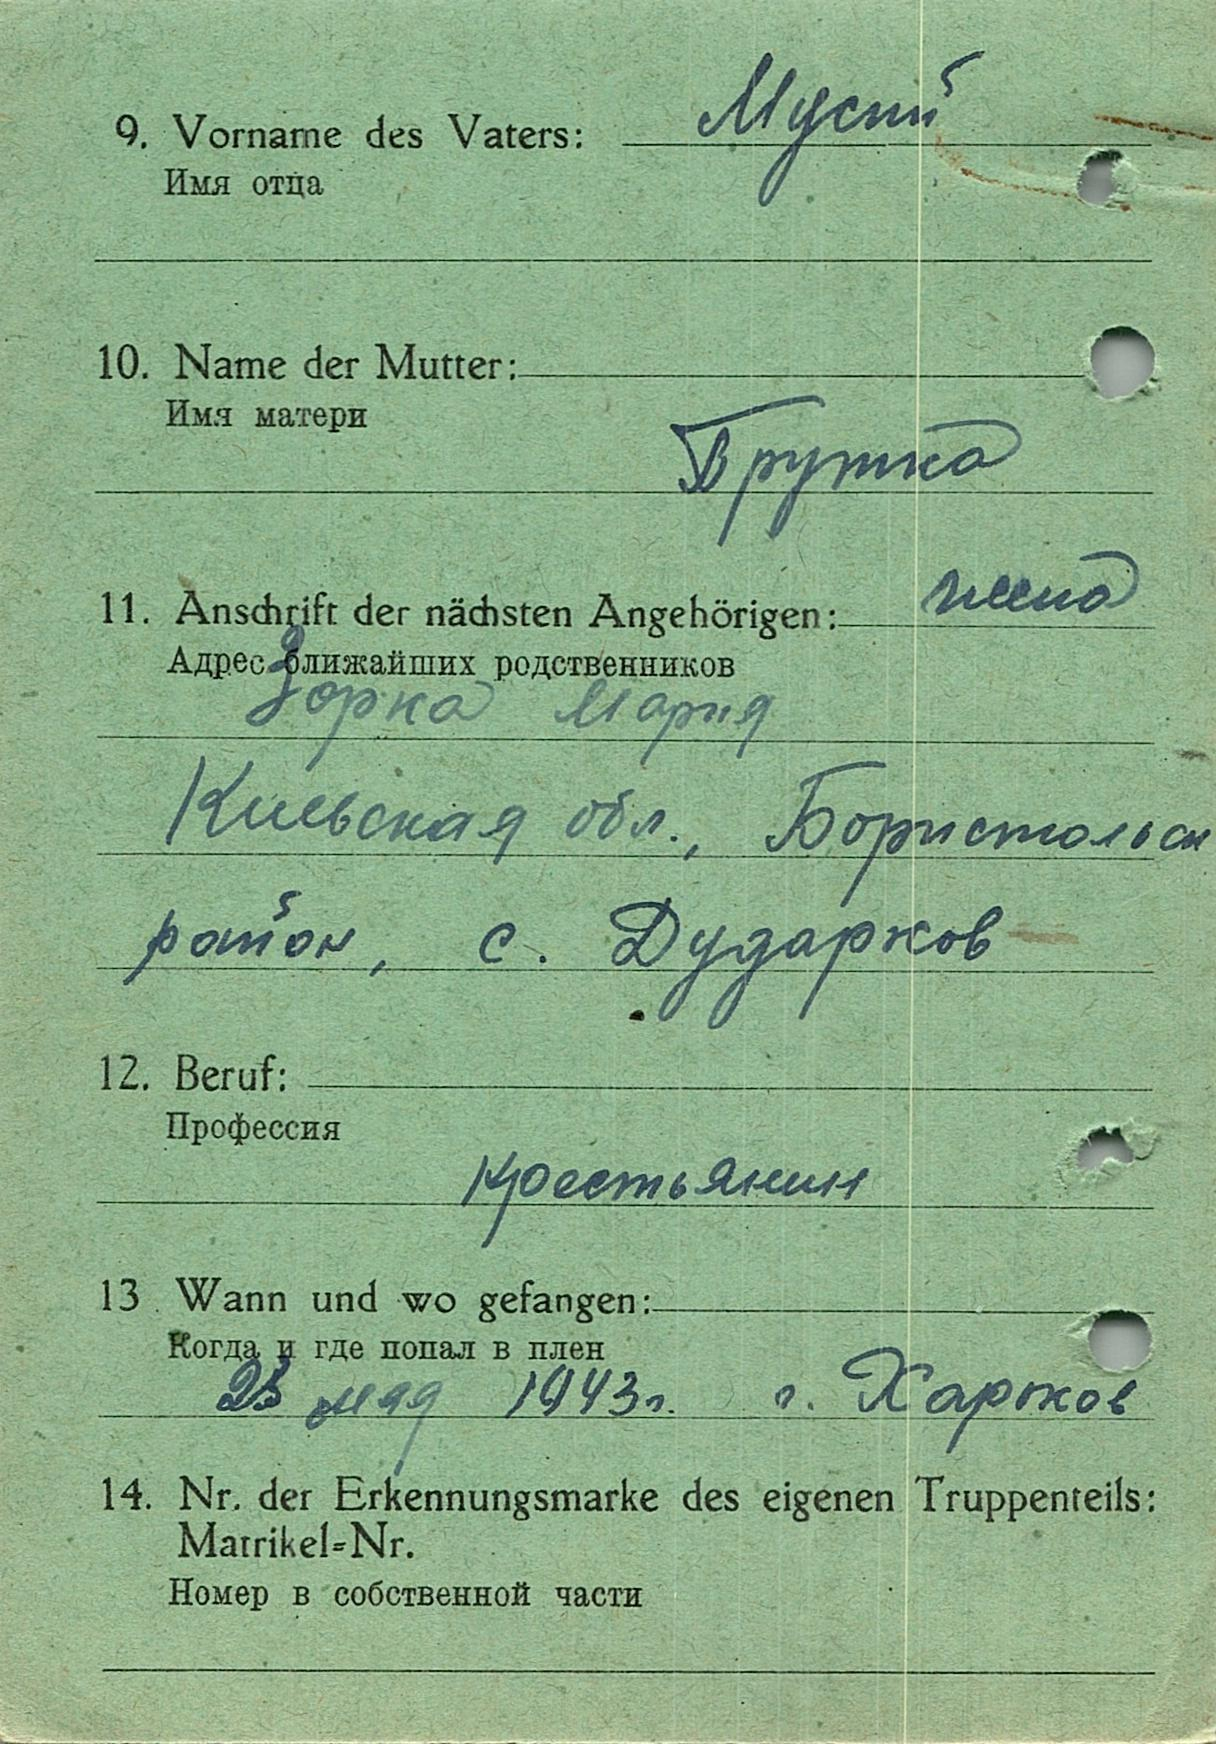 9. Vorname des Vaters: Мусий
Имя отца
10. Name der Mutter:
Имя матери
Брутка
11. Anschrift der nächsten Angehörigen: жена
Адрес ближайших родственников
Зорка Мария
Киевская обл., Бориспольск
район, с. Дударков
12. Beruf:
Профессия
крестьянин
13. Wann und wo gefangen:
Когда и где попал в плен
мая 1943 г. г. Харьков
14. Nr. der Erkennungsmarke des eigenen Truppenteils:
Matrikel=Nr.
Номер в собственной части